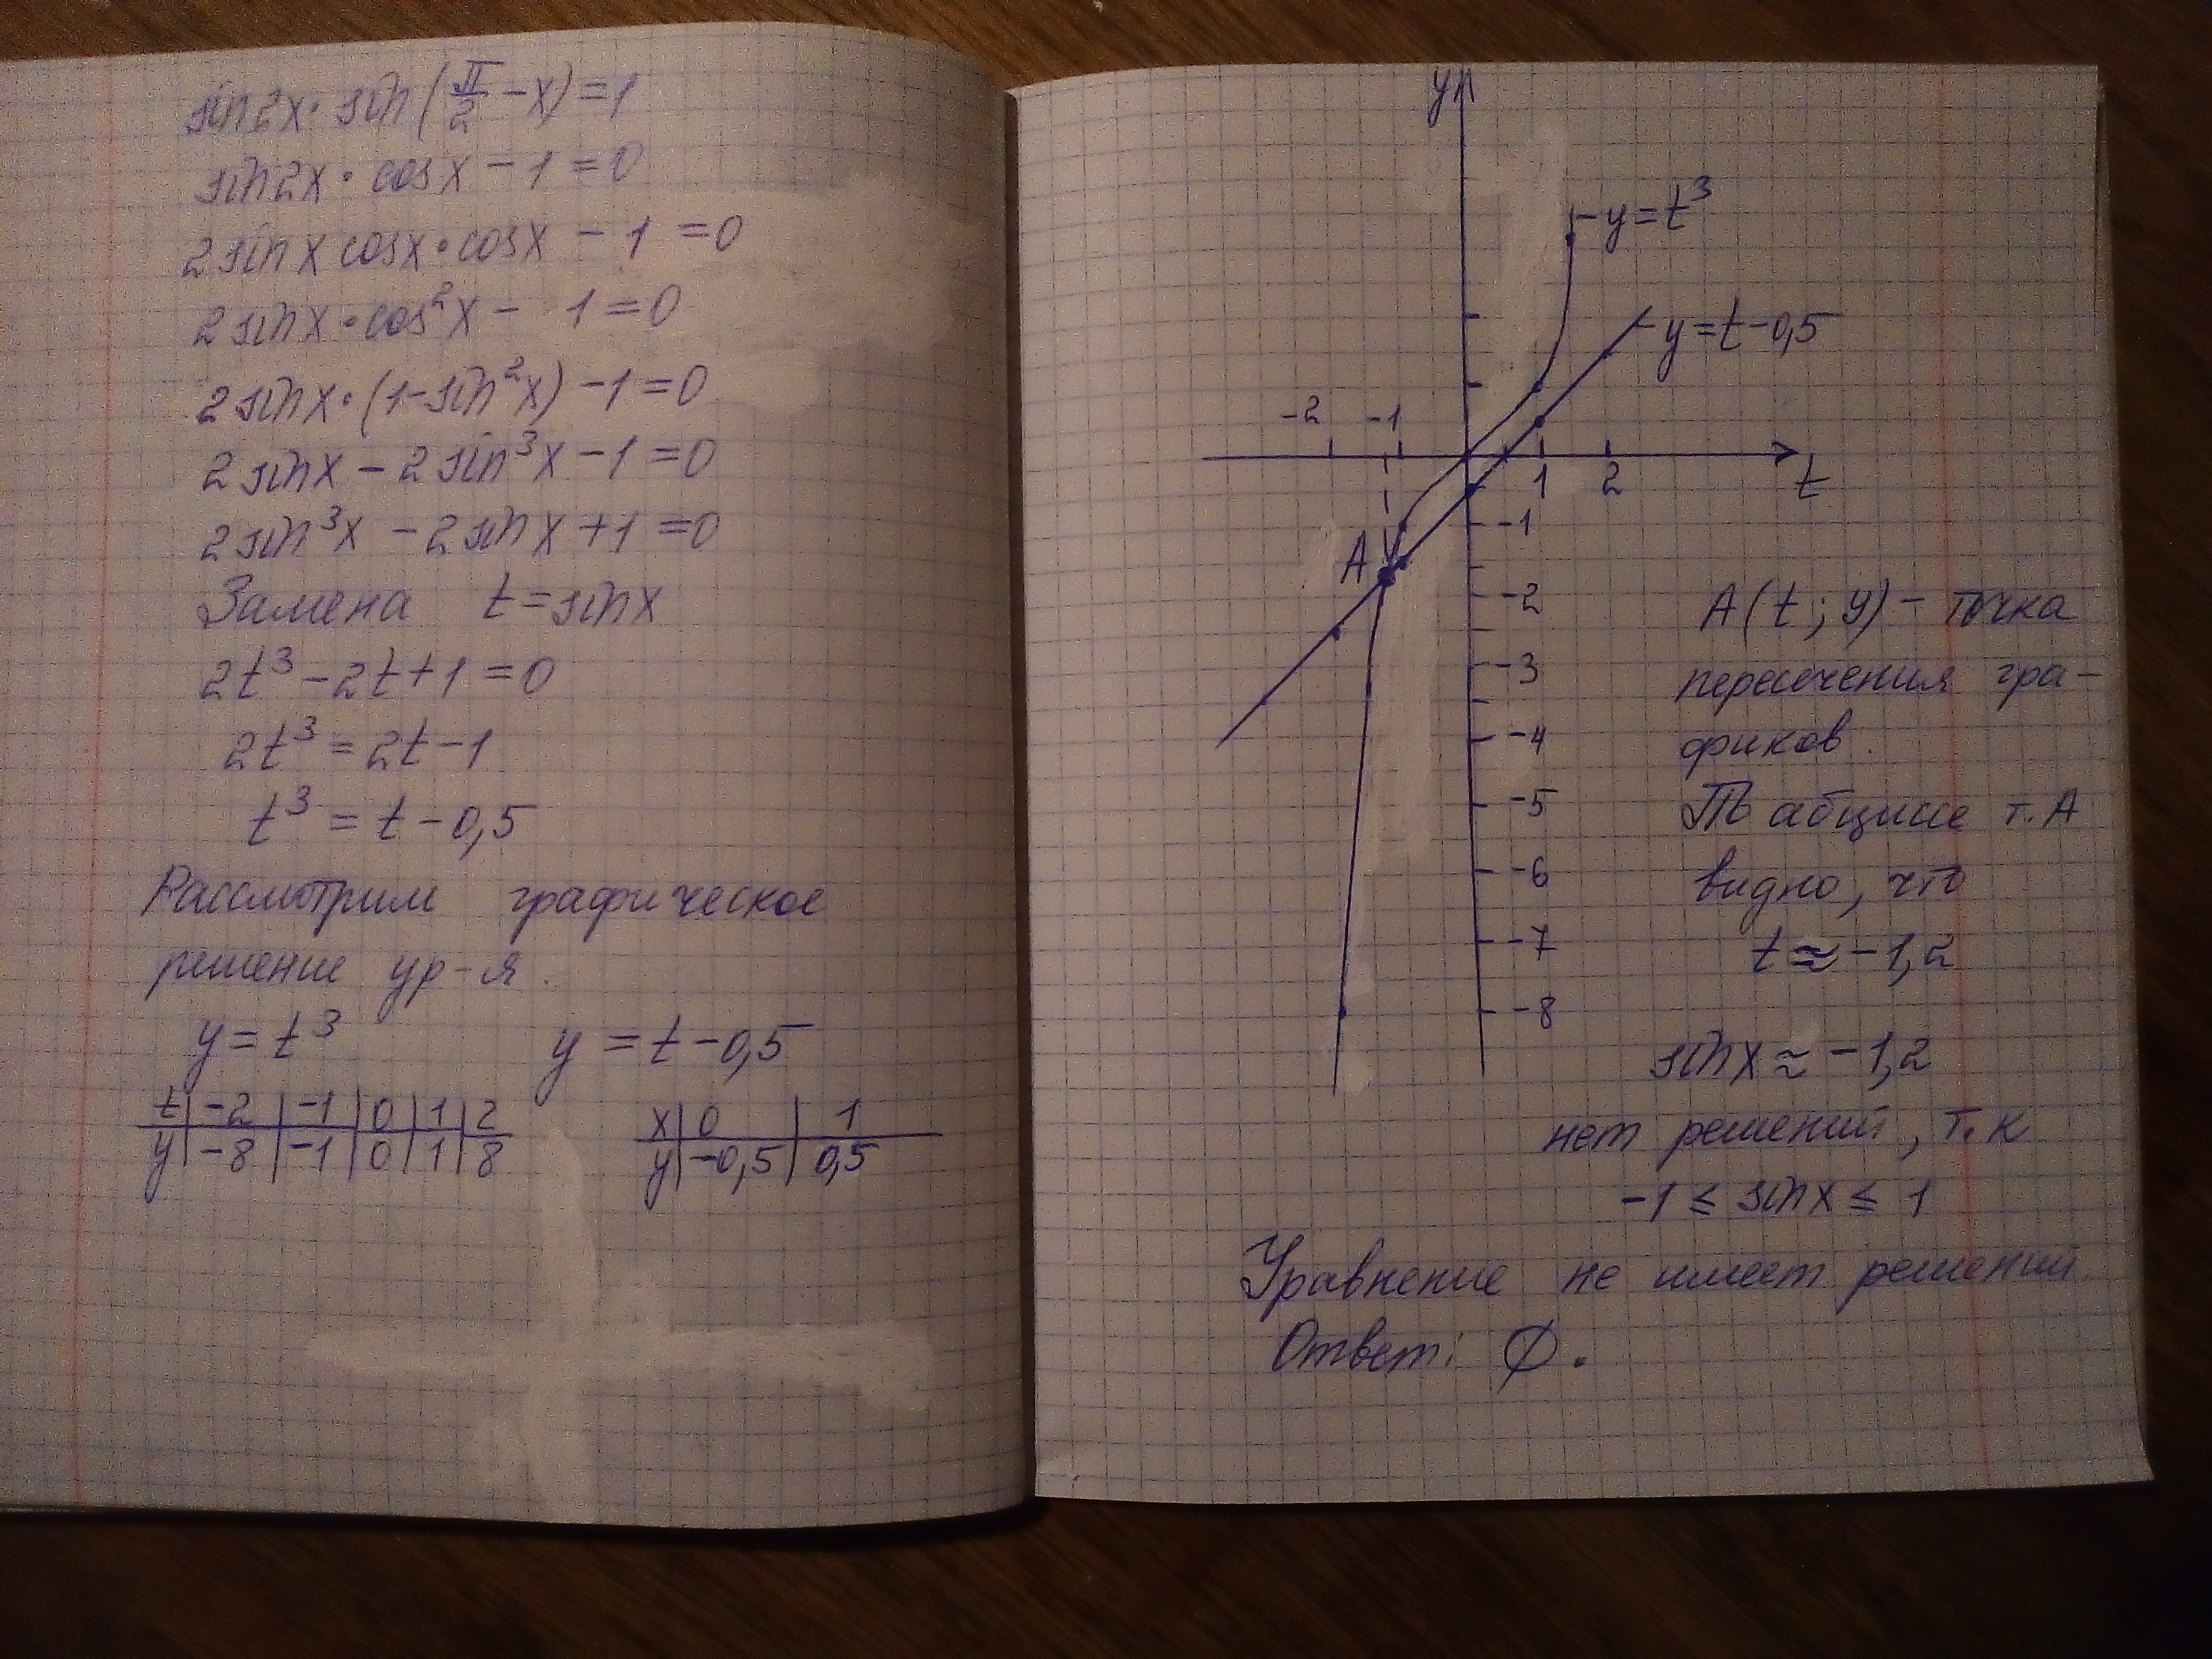 sin2x·sin(π/2 −x)=1
sin2x·cosx−1=0
2sinx cosx·cosx−1=0
2sinx·cos²x−1=0
2sinx·(1−sin²x)−1=0
2sinx−2sin³x−1=0
2sin³x−2sinx+1=0
Замена t=sinx
2t³−2t+1=0
2t³=2t−1
t³=t−0,5
Рассмотрим графическое
решение ур-я.
y=t³ y=t−0,5
t −2 −1 0 1 2
y −8 −1 0 1 8
x 0 1
y −0,5 0,5
y
y=t³
y=t−0,5
-2 -1
1 2 t
-1
A
-2
-3
-4
-5
-6
-7
-8
A(t;y)− точка
пересечения гра-
фиков.
По абцисе т.А
видно, что
t≈−1,2
sinx≈−1,2
нет решений, т.к
−1≤sinx≤1
Уравнение не имеет решений
Ответ: ∅.